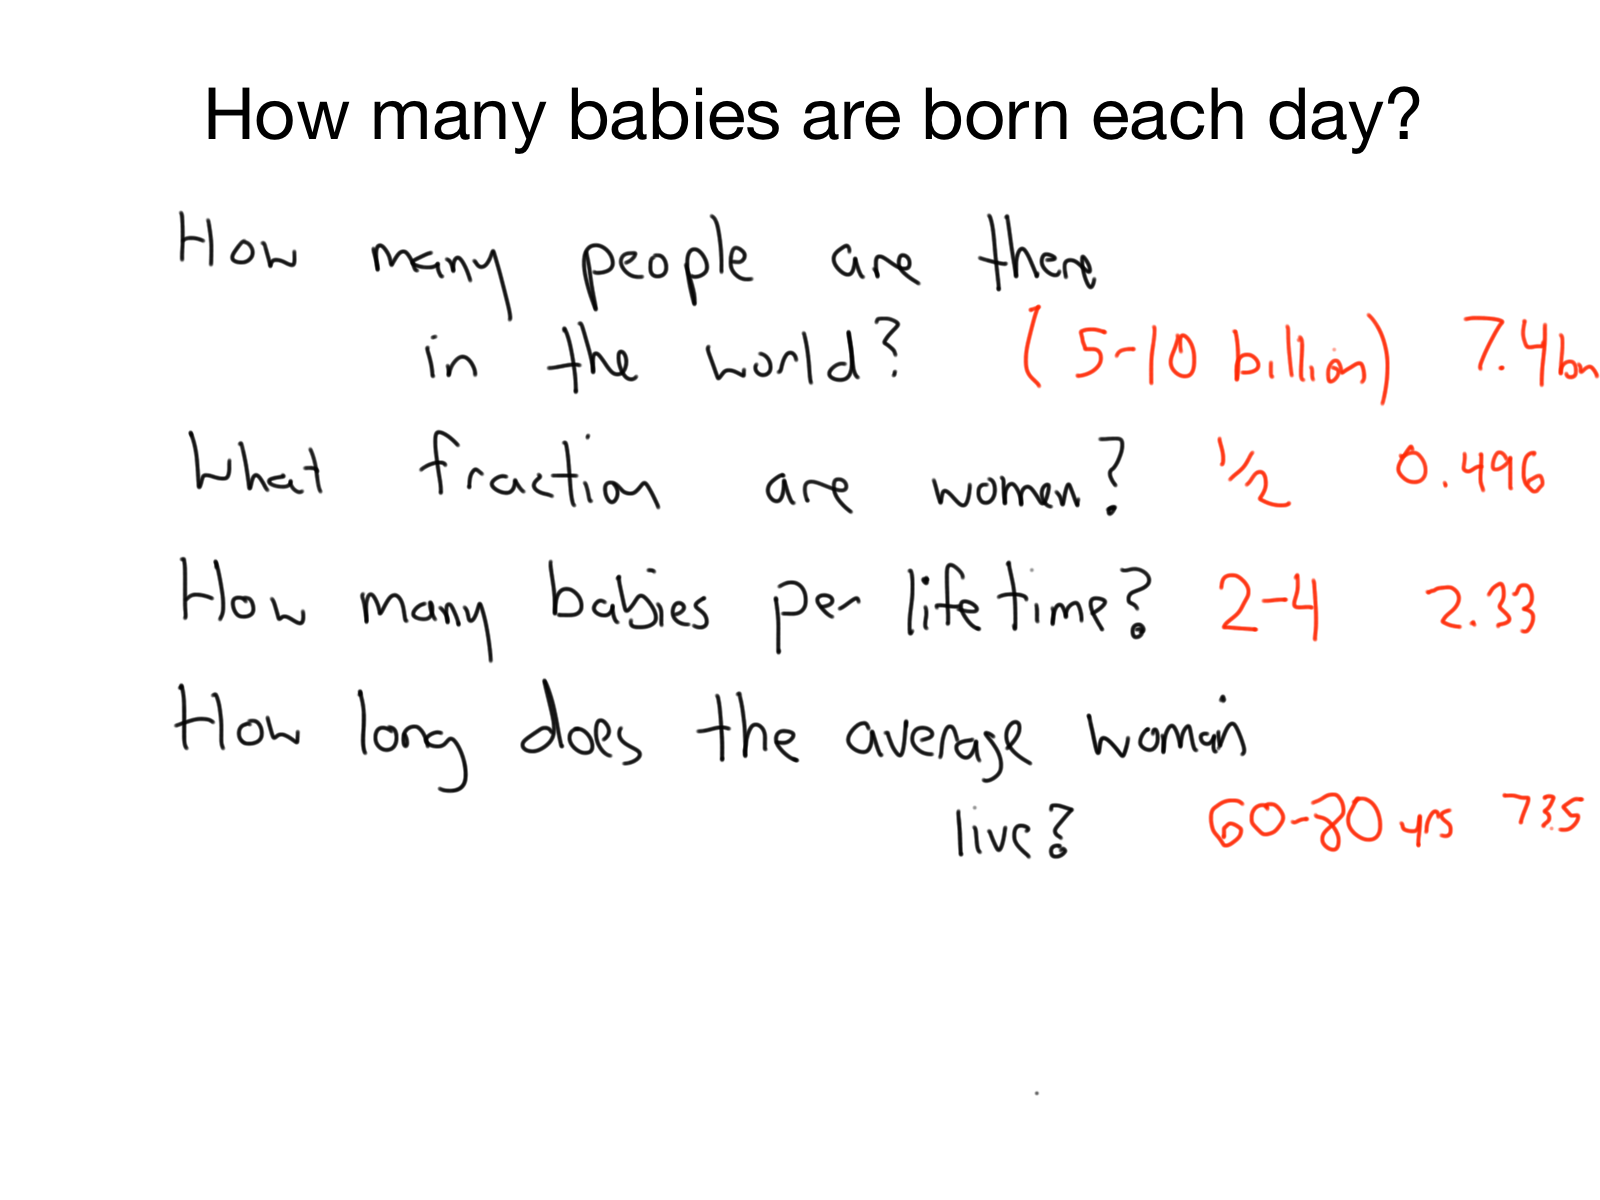 How many babies are born each day?
How many people are there
in the world? (5-10 billion) 7.4bn
What fraction are women? 1/2 0.496
How many babies per lifetime? 2-4 2.33
How long does the average woman
live? 60-80 yrs 73.5